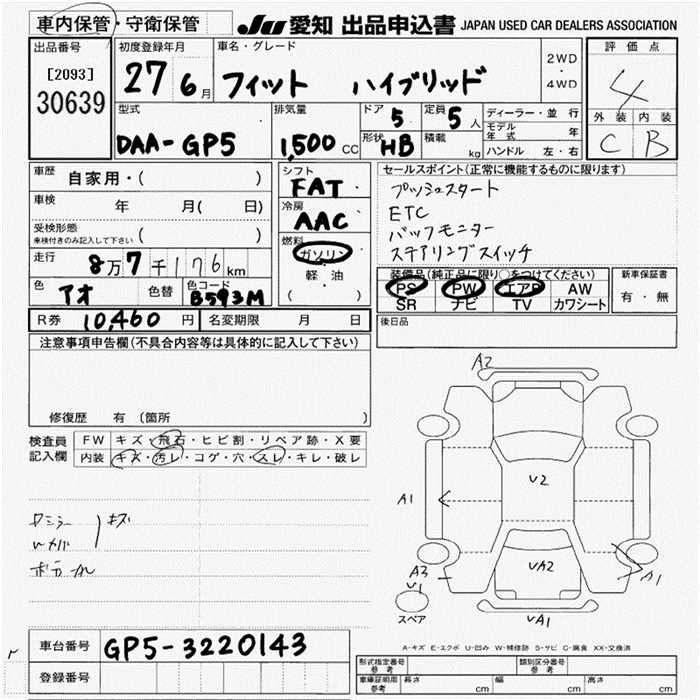 車内保管・守衛保管 JU 愛知 出品申込書 JAPAN USED CAR DEALERS ASSOCIATION
出品番号 [2093] 30639
初度登録年月 27 6月
車名・グレード フィット ハイブリッド
2WD・4WD
評価点 4
外装 内装
C B
型式 DAA-GP5
排気量 1,500 CC
ドア 5
定員 5人
形状 HB
積載 kg
ディーラー・並行
モデル年式 年
ハンドル 左・右
車歴 自家用・( )
車検 年 月( 日)
受検形態 ( )
車検付きのみ記入して下さい
走行 8万7千176km
色 アオ 色替 色コード B593M
シフト FAT
冷房 AAC
燃料 ガソリン
軽油
( ・ )
セールスポイント(正常に機能するものに限ります)
プッシュスタート
ETC
バックモニター
ステアリングスイッチ
装備品(純正品に限り○をつけてください)
PS PW エアB AW
SR ナビ TV カワシート
新車保証書
有・無
R券 10,460円 名変期限 月 日
後日品
注意事項申告欄(不具合内容等は具体的に記入して下さい)
修復歴 有(箇所 )
検査員記入欄
FW キズ・飛石・ヒビ割・リペア跡・X要
内装 キズ・汚レ・コゲ・穴・スレ・キレ・破レ
キズ
A2
U2
A1
UA2
A3
U1
A1
UA1
スペア
A-キズ E-エクボ U-凹み W-補修跡 S-サビ C-腐食 XX-交換済
車台番号 GP5-3220143
登録番号
型式指定番号 参考
類別区分番号 参考
車庫証明用 参考 長さ cm 幅 cm 高さ cm